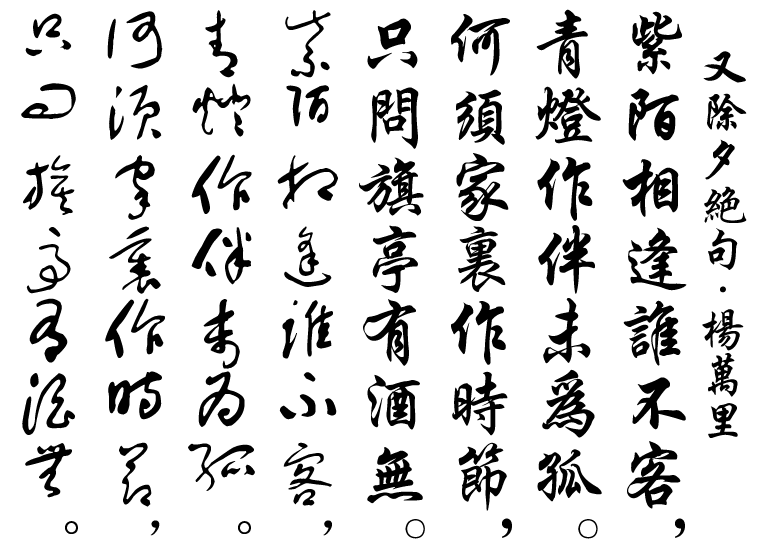 又除夕絕句·楊萬里
紫陌相逢誰不客，
青燈作伴未為孤。
何須家裏作時節，
只問旗亭有酒無。
紫陌相逢誰不客，
青燈作伴未為孤。
何須家裏作時節，
只問旗亭有酒無。